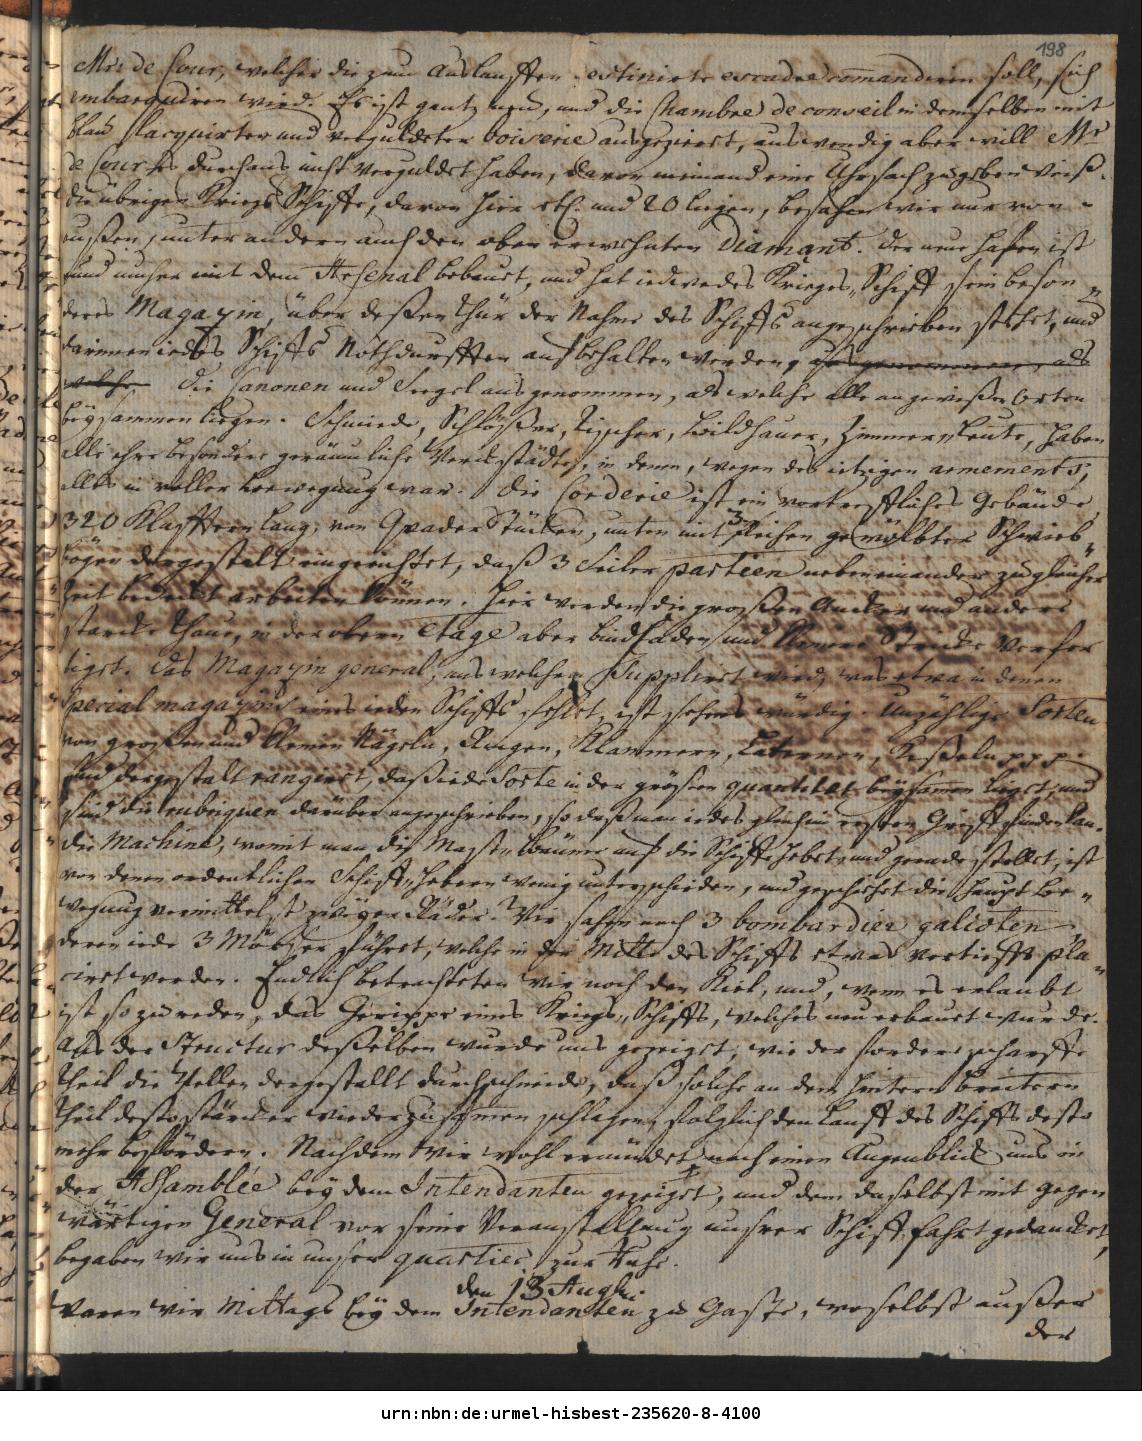 198
Mr: de Cour, welcher die zum Auslauffen destinirte escadre commandiren soll, sich
embarquiren wird. Es ist gantz neu, und die Chambre de conseil in demselben mit
blau lacquirter und verguldeter boiserie ausgezieret, auswendig aber will Mr
de Cour es durchaus nicht verguldet haben, davon niemand eine Uhrsach zu geben weiß.
Die übrigen Kriegs Schiffe, davon hier etl. und 20 liegen, besahen wir nur von
außen, unter andern auch den oben erwehnten Diamant. Der neue Hafen ist
rund umher mit dem Arsenal bebauet, und hat iedwedes Krieges-Schiff sein beson-
deres Magazin, über deßen Thür der Nahme des Schiffs angeschrieben stehet, und
darinnen iedes Schiffs Nothdurfften aufbehalten werden, ausgenommen, als
welche die Canonen und Seegel ausgenommen, als welche alle an gewißen Orten
beysammen liegen. Schmiede, Schlößer, Tischer, Bildhauer, Zimmer-Leute, haben
alle ihre besondere geräumliche Werckstädte, in denen, wegen des ietzigen armements,
alles in voller Bewegung war. Die Corderie ist ein vortreffliches Gebäude,
320 Klafftern lang, von Quader Stücken, unten mit 3 Reihen gewölbter Schwieb-
bögen dergestalt eingerichtet, daß 3 Seiler partien neben einander zu gleicher
Zeit bedeckt arbeiten können. Hier werden die großen Ancker und andere
starcke Thaue, in der obern Etage aber Bindfaden und kleinere Stricke verfer
tiget. Das Magazin general, aus welchen suppliret wird, was etwa in denen
special magazins eines ieden Schiffs fehlet, ist sehens würdig. Unzählige Sorten
von großen und kleinen Nägeln, Ringen, Klammern, Laternen, Keßeln ppp.
sind dergestalt rangiret, daß iede Sorte in der grösten quantitet beysammen lieget, und
sind die rubriquen darüber angeschrieben, so daß man iedes gleich im ersten Griff finden kan.
Die Machine, womit man die Mast-Bäume auf die Schiffe hebet und gerade stellet, ist
von denen ordentlichen Schiff-Hebern wenig unterschieden, und geschiehet die Haupt Be-
wegung vermittelst zweyer Räder. Wir sahen noch 3 bombardier galioten,
deren iede 3 Mörser führet, welche in der Mitte des Schiffs etwas vertiefft pla-
ciret werden. Endlich betrachteten wir noch den Kiel, und, wenn es erlaubt
ist so zu reden, das Gerippe eines Kriegs-Schiffs, welches neu erbauet wurde.
Aus der Structur deßelben wurde uns gezeiget, wie der fordere scharffe
Theil die Wellen dergestallt durchschneide, daß solche an dem hintern breitern
Theil desto stärcker wieder zusammen schlagen, folglich den Lauff des Schiffs desto
mehr befördern. Nachdem wir wohl ermüdet noch einen Augenblick uns in
der Assamblée bey dem Intendanten gezeiget, und dem daselbst mit gegen
wärtigen General vor seine Veranstalltung unsrer Schiffahrt gedancket,
begaben wir uns in unser quartier zur Ruhe.
den 13 Augli
waren wir Mittags bey dem Intendanten zu Gaste, woselbst außer
der
urn:nbn:de:urmel-hisbest-235620-8-4100